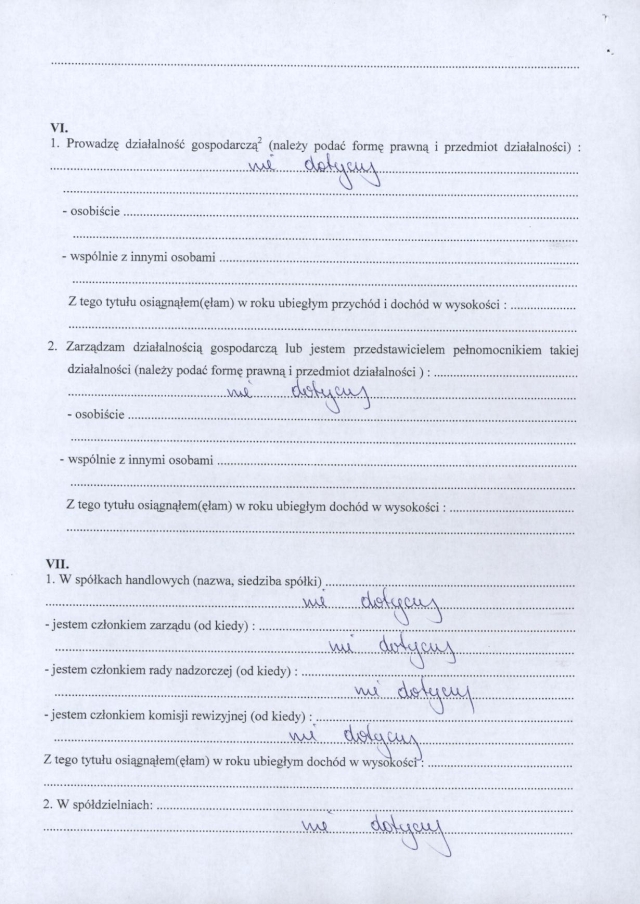 VI.
1. Prowadzę działalność gospodarczą² (należy podać formę prawną i przedmiot działalności) :
nie dotyczy
- osobiście
- wspólnie z innymi osobami
Z tego tytułu osiągnąłem(ęłam) w roku ubiegłym przychód i dochód w wysokości :
2. Zarządzam działalnością gospodarczą lub jestem przedstawicielem pełnomocnikiem takiej
działalności (należy podać formę prawną i przedmiot działalności ) :
nie dotyczy
- osobiście
- wspólnie z innymi osobami
Z tego tytułu osiągnąłem(ęłam) w roku ubiegłym dochód w wysokości :
VII.
1. W spółkach handlowych (nazwa, siedziba spółki)
nie dotyczy
- jestem członkiem zarządu (od kiedy) :
nie dotyczy
- jestem członkiem rady nadzorczej (od kiedy) :
nie dotyczy
- jestem członkiem komisji rewizyjnej (od kiedy) :
nie dotyczy
Z tego tytułu osiągnąłem(ęłam) w roku ubiegłym dochód w wysokości :
2. W spółdzielniach:
nie dotyczy